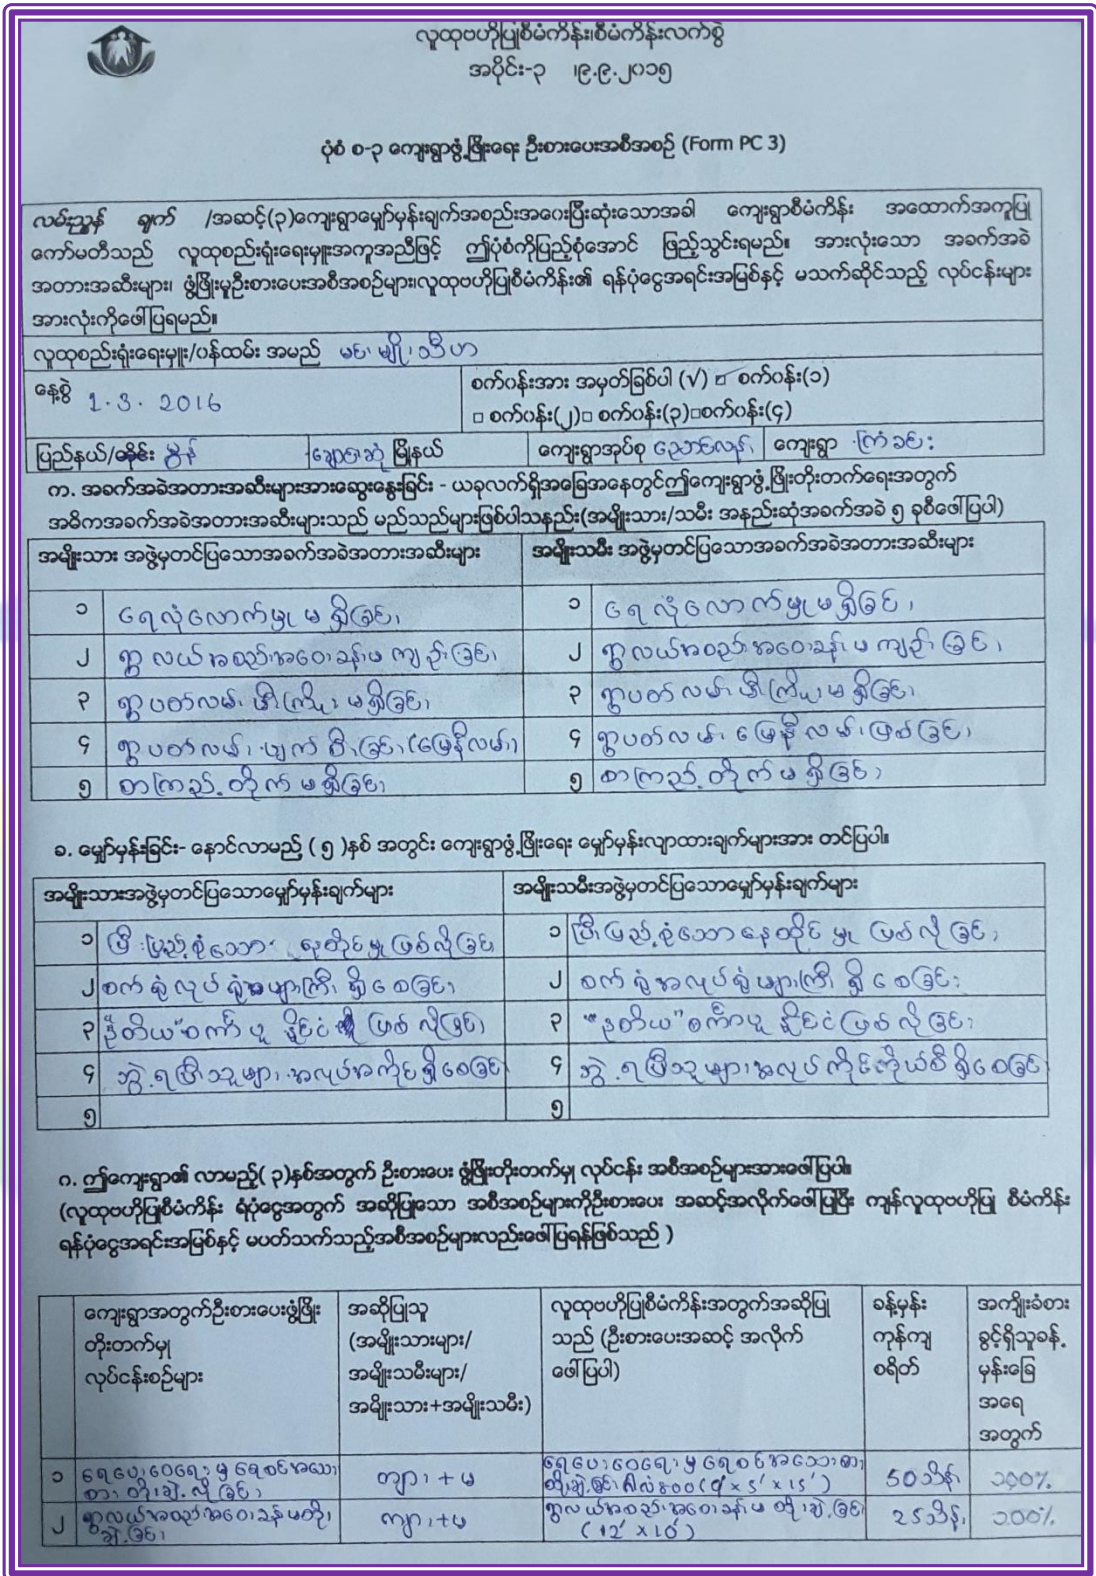 လူထုဗဟိုပြုစီမံကိန်း၊စီမံကိန်းလက်စွဲ
အပိုင်း-၃ ၊၉.၉.၂၀၁၅
ပုံစံ စ-၃ ကျေးရွာဖွံ့ဖြိုးရေး ဦးစားပေးအစီအစဉ် (Form PC 3)
လမ်းညွှန် ချက် /အဆင့်(၃)ကျေးရွာမျှော်မှန်းချက်အစည်းအဝေးပြီးဆုံးသောအခါ ကျေးရွာစီမံကိန်း အထောက်အကူပြု
ကော်မတီသည် လူထုစည်းရုံးရေးမှူးအကူအညီဖြင့် ဤပုံစံကိုပြည့်စုံအောင် ဖြည့်သွင်းရမည်။ အားလုံးသော အခက်အခဲ
အတားအဆီးများ၊ ဖွံ့ဖြိုးမှုဦးစားပေးအစီအစဉ်များ၊လူထုဗဟိုပြုစီမံကိန်း၏ ရန်ပုံငွေအရင်းအမြစ်နှင့် မသက်ဆိုင်သည့် လုပ်ငန်းများ
အားလုံးကိုဖေါ်ပြရမည်။
လူထုစည်းရုံးရေးမှူး/ဝန်ထမ်း အမည် မင်းမျိုးသီဟ
နေ့စွဲ 2.3.2016
စက်ဝန်းအား အမှတ်ခြစ်ပါ (√) □ စက်ဝန်း(၁)
□ စက်ဝန်း(၂)□ စက်ဝန်း(၃)□စက်ဝန်း(၄)
ပြည်နယ်/တိုင်း မွန် ချောင်းဆုံ မြို့နယ် ကျေးရွာအုပ်စု ညောင်လန်း ကျေးရွာ ကြံခင်း
က. အခက်အခဲအတားအဆီးများအားဆွေးနွေးခြင်း - ယခုလက်ရှိအခြေအနေတွင်ဤကျေးရွာဖွံ့ဖြိုးတိုးတက်ရေးအတွက်
အဓိကအခက်အခဲအတားအဆီးများသည် မည်သည်များဖြစ်ပါသနည်း(အမျိုးသား/သမီး အနည်းဆုံအခက်အခဲ ၅ ခုစီဖေါ်ပြပါ)
အမျိုးသား အဖွဲ့မှတင်ပြသောအခက်အခဲအတားအဆီးများ အမျိုးသမီး အဖွဲ့မှတင်ပြသောအခက်အခဲအတားအဆီးများ
၁ ရေလုံလောက်မှုမရှိခြင်း ၁ ရေလုံလောက်မှုမရှိခြင်း
၂ ရွာလယ်အစည်းအဝေးခန်းမကျဉ်းခြင်း ၂ ရွာလယ်အစည်းအဝေးခန်းမကျဉ်းခြင်း
၃ ရွာပတ်လမ်းမီးကြိုးမရှိခြင်း ၃ ရွာပတ်လမ်းမီးကြိုးမရှိခြင်း
၄ ရွာပတ်လမ်းပျက်စီးခြင်း(မြေနီလမ်း) ၄ ရွာပတ်လမ်းမြေနီလမ်းဖြစ်ခြင်း
၅ စာကြည့်တိုက်မရှိခြင်း ၅ စာကြည့်တိုက်မရှိခြင်း
ခ. မျှော်မှန်းခြင်း- နောင်လာမည့် ( ၅ )နှစ် အတွင်း ကျေးရွာဖွံ့ဖြိုးရေး မျှော်မှန်းလျာထားချက်များအား တင်ပြပါ။
အမျိုးသားအဖွဲ့မှတင်ပြသောမျှော်မှန်းချက်များ အမျိုးသမီးအဖွဲ့မှတင်ပြသောမျှော်မှန်းချက်များ
၁ ပြီးပြည့်စုံသော နေထိုင်မှုဖြစ်လိုခြင်း ၁ ပြီးပြည့်စုံသောနေထိုင်မှုဖြစ်လိုခြင်း
၂ စက်ရုံလုပ်ရုံများကြီးရှိစေခြင်း ၂ စက်ရုံအလုပ်ရုံများကြီးရှိစေခြင်း
၃ ဒုတိယ"စင်္ကာပူနိုင်ငံ ဖြစ်လိုခြင်း ၃ "ဒုတိယ"စင်္ကာပူနိုင်ငံဖြစ်လိုခြင်း
၄ ဘွဲ့ရပြီးသူများအလုပ်အကိုင်ရှိစေခြင်း ၄ ဘွဲ့ရပြီးသူများအလုပ်ကိုင်ကိုယ်စီရှိစေခြင်း
၅ ၅
ဂ. ဤကျေးရွာ၏ လာမည့်( ၃)နှစ်အတွက် ဦးစားပေး ဖွံ့ဖြိုးတိုးတက်မှု လုပ်ငန်း အစီအစဉ်များအားဖေါ်ပြပါ။
(လူထုဗဟိုပြုစီမံကိန်း ရံပုံငွေအတွက် အဆိုပြုသော အစီအစဉ်များကိုဦးစားပေး အဆင့်အလိုက်ဖေါ်ပြပြီး ကျန်လူထုဗဟိုပြု စီမံကိန်း
ရန်ပုံငွေအရင်းအမြစ်နှင့် မပတ်သက်သည့်အစီအစဉ်များလည်းဖေါ်ပြရန်ဖြစ်သည် )
ကျေးရွာအတွက်ဦးစားပေးဖွံ့ဖြိုး
တိုးတက်မှု
လုပ်ငန်းစဉ်များ
အဆိုပြုသူ
(အမျိုးသားများ/
အမျိုးသမီးများ/
အမျိုးသား+အမျိုးသမီး)
လူထုဗဟိုပြုစီမံကိန်းအတွက်အဆိုပြု
သည် (ဦးစားပေးအဆင့် အလိုက်
ဖေါ်ပြပါ)
ခန့်မှန်း
ကုန်ကျ
စရိတ်
အကျိုးခံစား
ခွင့်ရှိသူခန့်
မှန်းခြေ
အရေ
အတွက်
၁ ရေပေးဝေရေးမှရေစင်အသေး
စားတိုးချဲ့လိုခြင်း
ကျား+မ
ရေပေးဝေရေးမှရေစင်အသေးစား
တိုးချဲ့ခြင်း ဂါလံ ၈၀၀ (9'×5'×15')
50သိန်း ၁၀၀%
၂ ရွာလယ်အစည်းအဝေးခန်းမတိုး
ချဲ့ခြင်း
ကျား+မ
ရွာလယ်အစည်းအဝေးခန်းမတိုးချဲ့ခြင်း
(12'×10')
25သိန်း ၁၀၀%